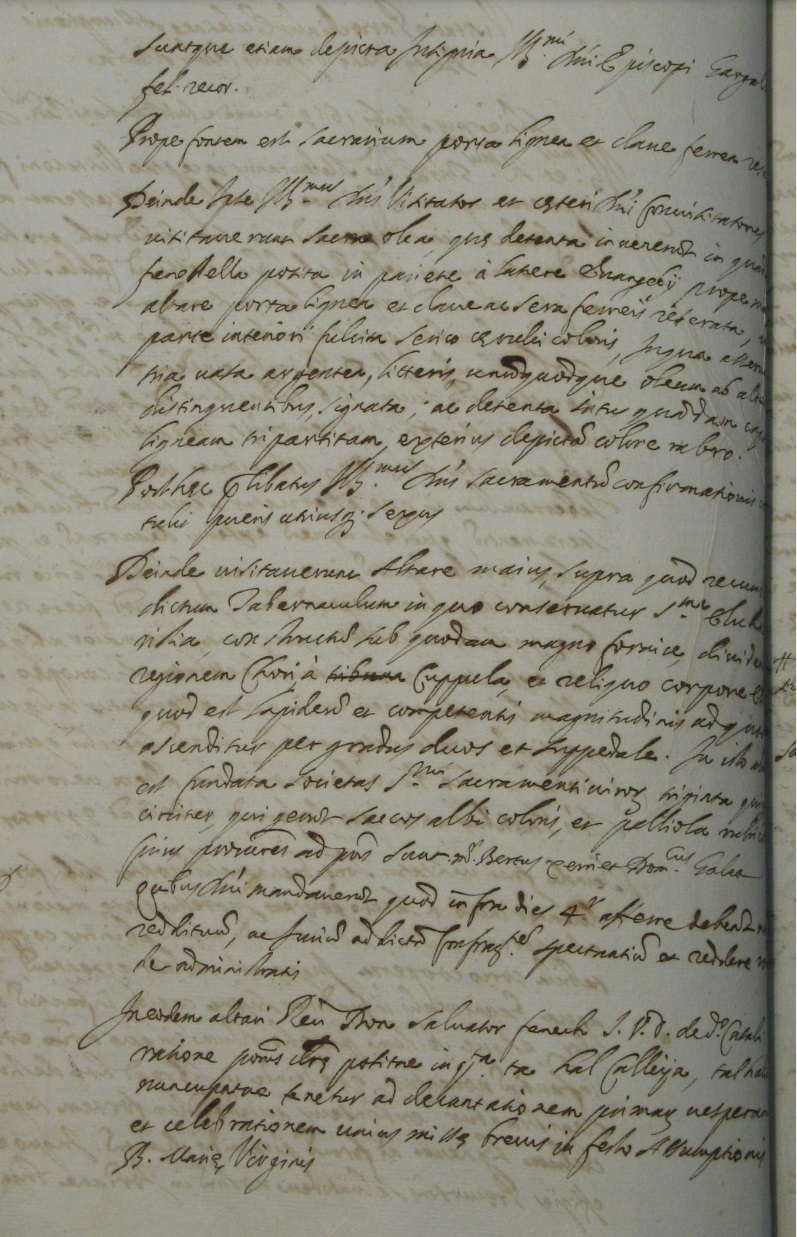 suntque etiam depicta Insignia Ill.mi Dni Episcopi Gargal
fel. recor.
Prope fontem est sacrarium porta lignea et clave ferrea
Deinde Ipse Ill.mus Dns Visitator et cęteri Dni Convisitatores
visitaverunt sacra olea, quę detenta invenerũt in
fenestella posita in pariete à latere Evangelij prope
altare porta lignea et clave ac sera ferreis reserata,
parte interiori fulcita serico cęrulei coloris, In qua
tria vasa argentea, litteris, unũquodque oleum ab
distinguentibus, signata; ac detenta intus quãdam
ligneam tripartitam, exterius depictã colore rubro.
Post hęc plibatus Ill.mus Dns sacramentũ confirmationis
tulit pueris utriusq; sexus
Deinde visitaverunt Altare maius, supra quod
dictum Tabernaculum in quo conservatur S.me
ristia, constructũ sub quodam magno fornice,
regionem Chori à tribuna Cuppula, et reliquo corpore
quod est lapideũ et competentis magnitudinis ad
ascenditur per gradus duos et suppedale. In
est fundata societas S.mi Sacramenti viroꝝ triginta
circiter, qui gerũt saccos albi coloris, et palliola
huius procures ad pñs sunt Bertus et Dom.cus Galea
quibus Dni mandaverũt quod infra dies 4.r afferre debeãt
redditũũ, ac iuriũ ad dictã spectantiũ et reddere
de administratis
In eodem altari Reu. Don Salvator fenech J. V. D. de D.
ratione positae in ta hal Calleija, tal
nuncupatae tenetur ad decantationem primaꝝ vesperarũ
et celebrationem unius missę brevis in festo Assumptionis
B. Marię Virginis